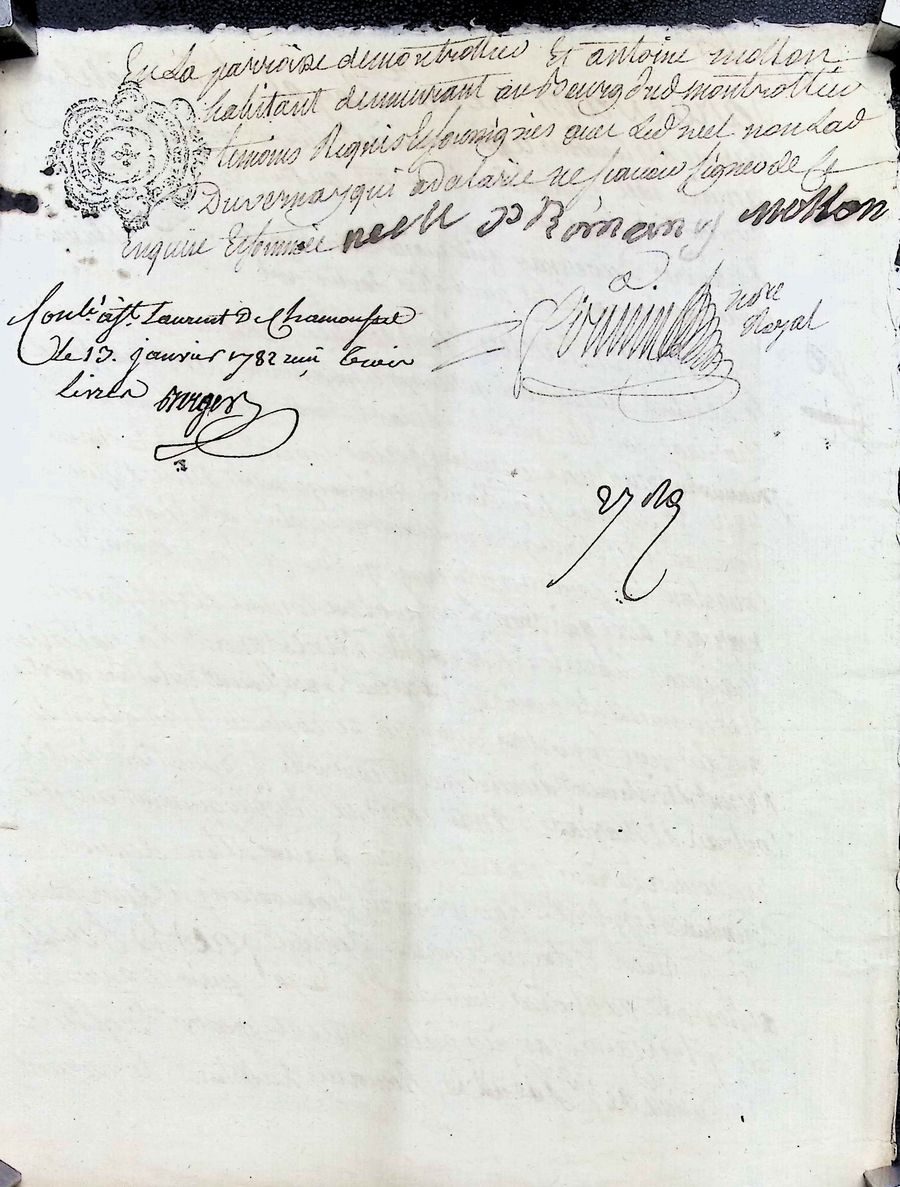 En La parroisse de montrottier Et antoine mollon
habitant demeurant au Bourg dud montrottier
temoins Requis Et soussignés avec Led neel non Lad
Duvernay qui a declarée ne scavoir signer de ce
Enquise Et sommée neel P Romany mollon
nore
Royal
Conlé à St. Laurent De Chamousset
Le 13. janvier 1782 reçu trois
Livres